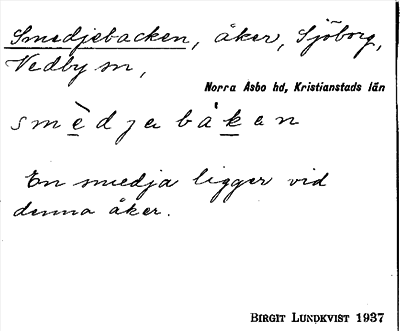 Smedjebacken, åker, Sjöborg,
Vedby sn,
Norra Åsbo hd, Kristianstads län
smèdjabàkan
En smedja ligger vid
denna åker.
BIRGIT LUNDKVIST 1937